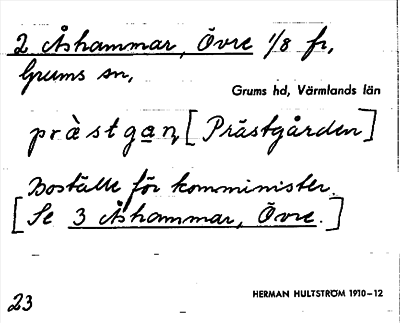 2 Åshammar, Övre 1/8 fr,
Grums sn,
Grums hd, Värmlands län
pràstgan, [Prästgården]
Boställe för komminister.
[Se 3 Åshammar, Övre.]
23
HERMAN HULTSTRÖM 1910-12